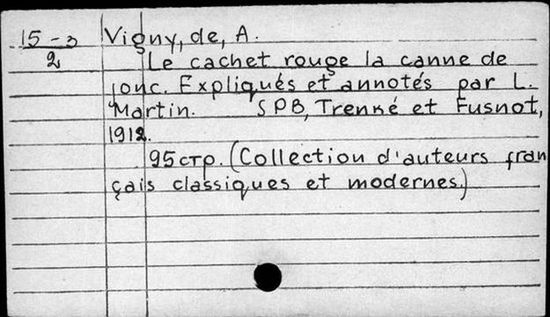 15-3 Vigny, de, A.
2 Le cachet rouge la canne de
jonc. Expliqués et annotés par L.
Martin. SPB, Trenké et Fusnot,
1912.
95 стр. (Collection d'auteurs fran
çais classiques et modernes.)